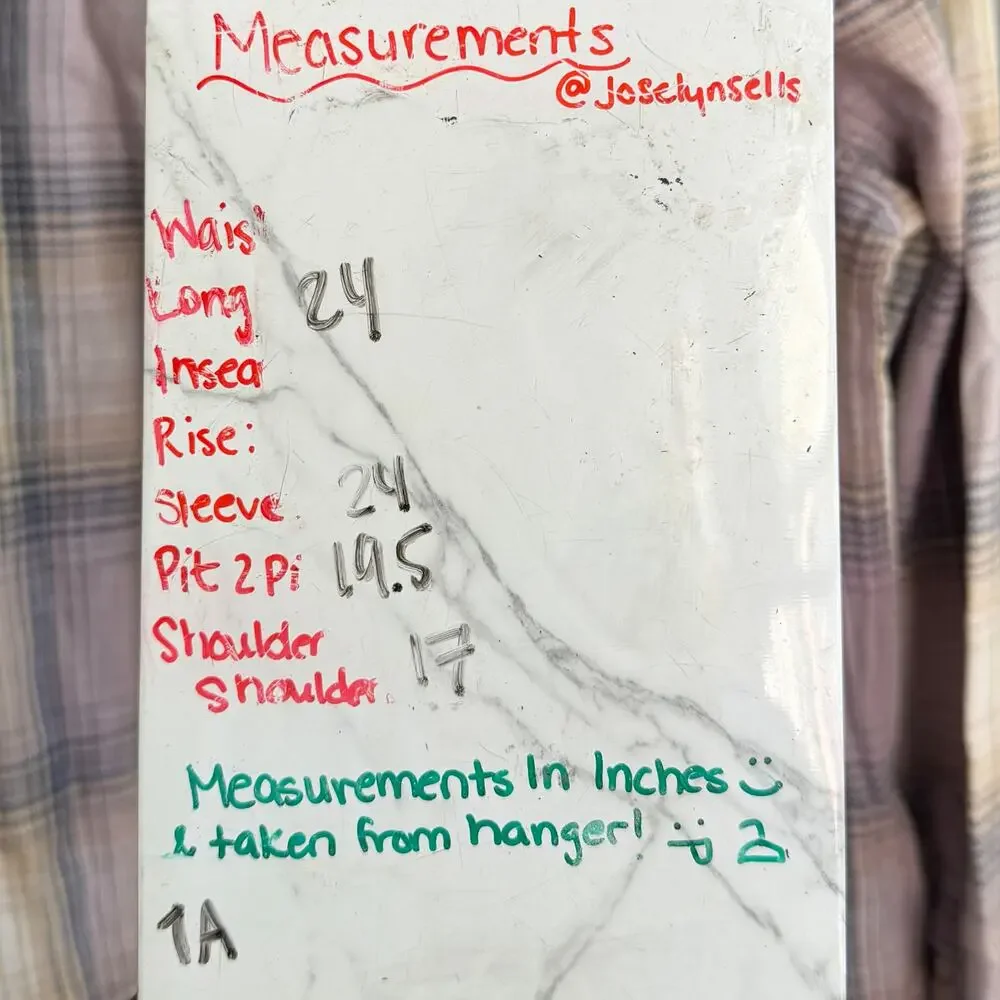 Measurements
@Joselynsells
Waist
Long 24
Insea
Rise:
Sleeve 24
Pit 2 Pi 19.5
Shoulder
Shoulder 17
Measurements In Inches :)
& taken from hanger! :)
1A